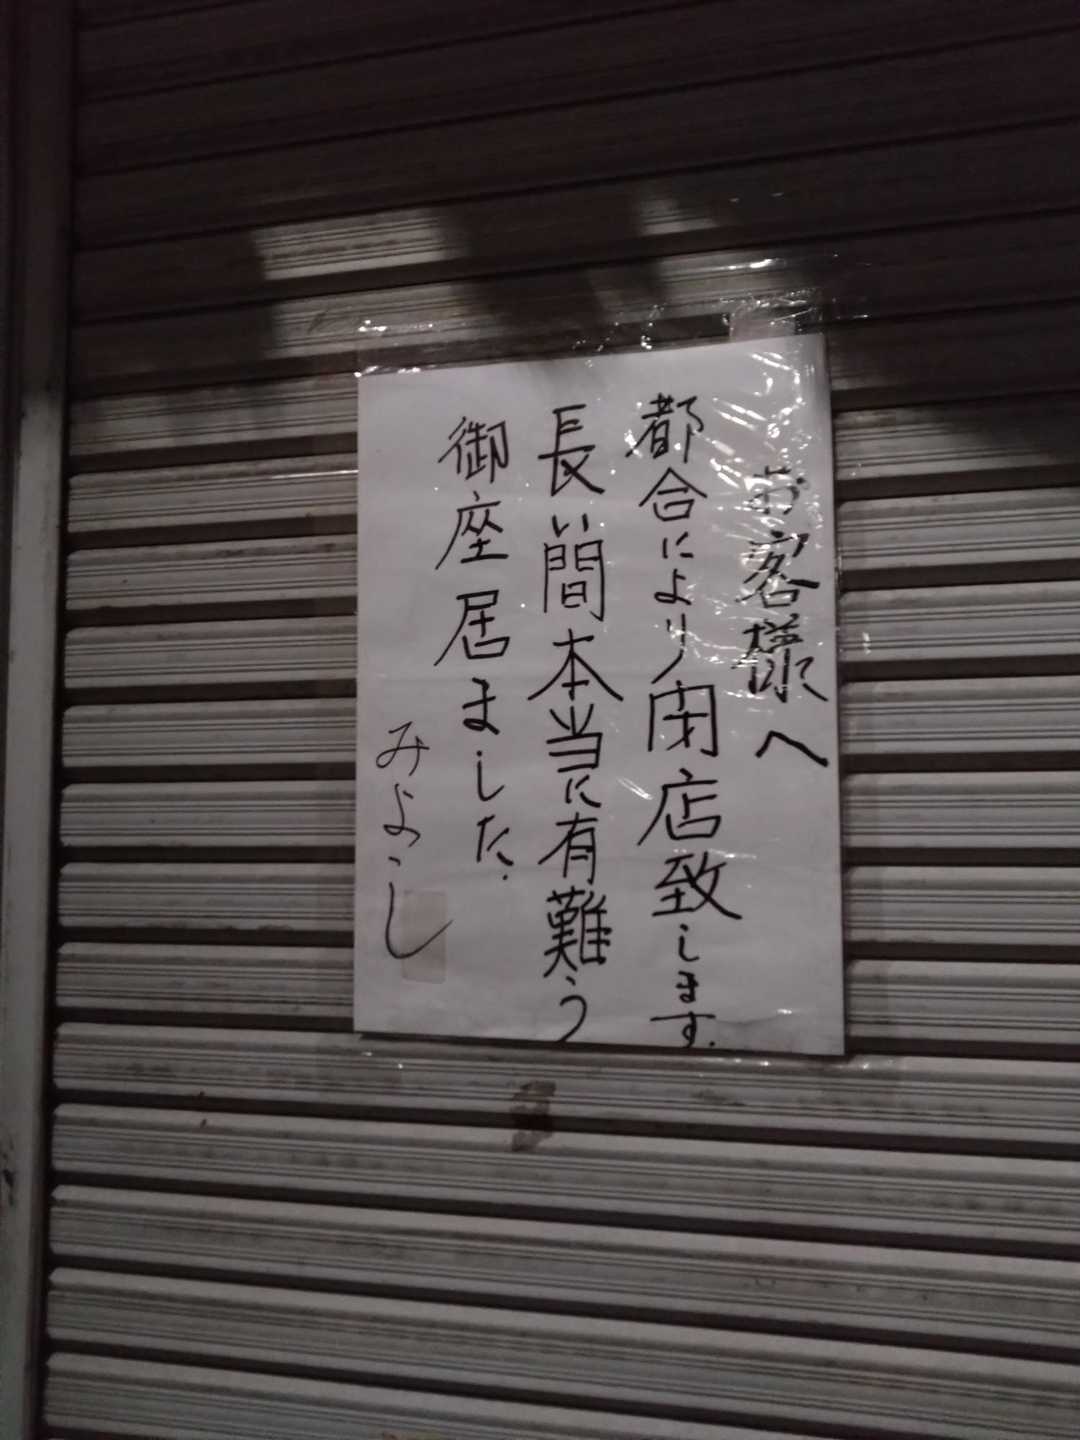 お客様へ
都合により閉店致します.
長い間本当に有難う
御座居ました.
みよし